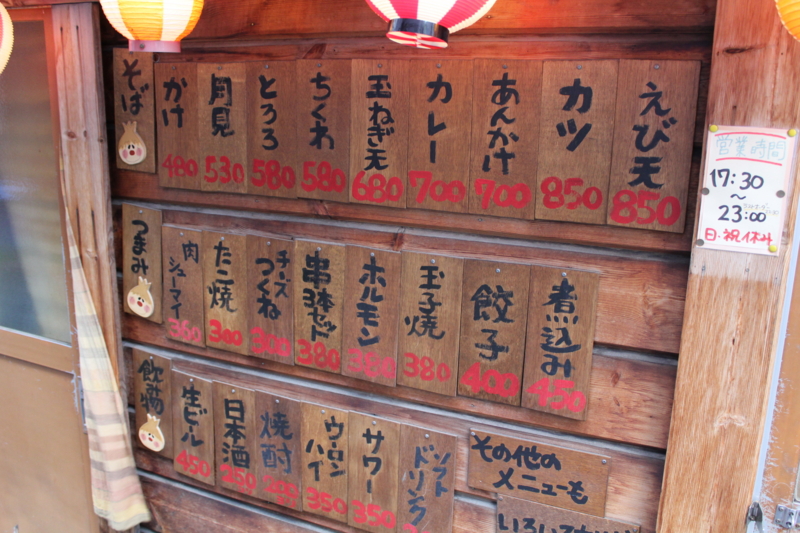 そば
かけ 480
月見 530
とろろ 580
ちくわ 580
玉ねぎ天 680
カレー 700
あんかけ 700
カツ 850
えび天 850
つまみ
肉シューマイ 360
たこ焼 300
チーズつくね 300
串3本セット 380
ホルモン 380
玉子焼 380
餃子 400
煮込み 450
飲物
生ビール 450
日本酒 250
焼酎 200
ウーロンハイ 350
サワー 350
ソフトドリンク
その他の
メニューも
営業時間
17:30
～
23:00
日・祝休み